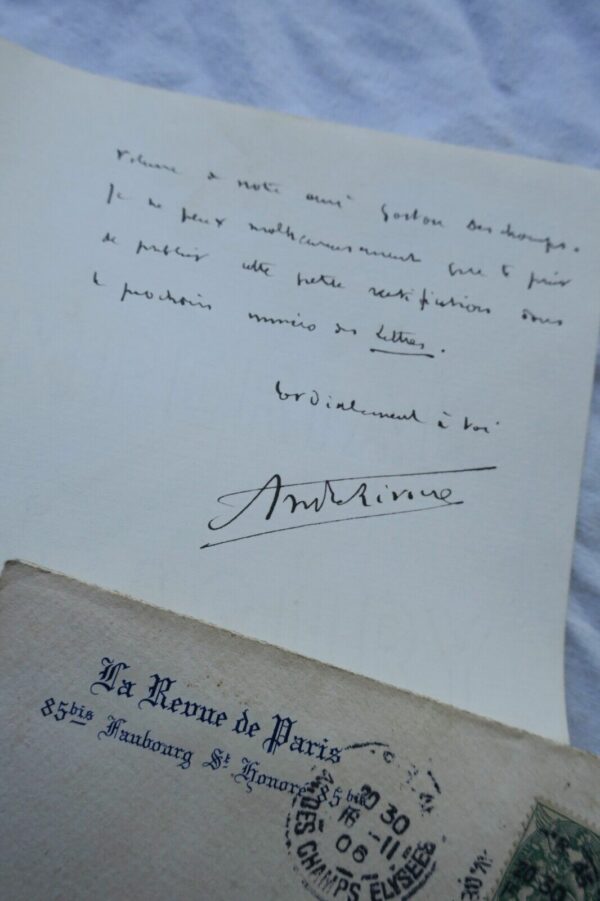 volume de notre ami Gaston Deschamps.
Je ne peux malheureusement que te prier
de publier cette petite rectification dans
le prochain numéro des Lettres.
Cordialement à toi
André Rivoire
La Revue de Paris
85bis Faubourg St Honoré 85bis
20 30
16 - 11
06
DES CHAMPS ELYSEES